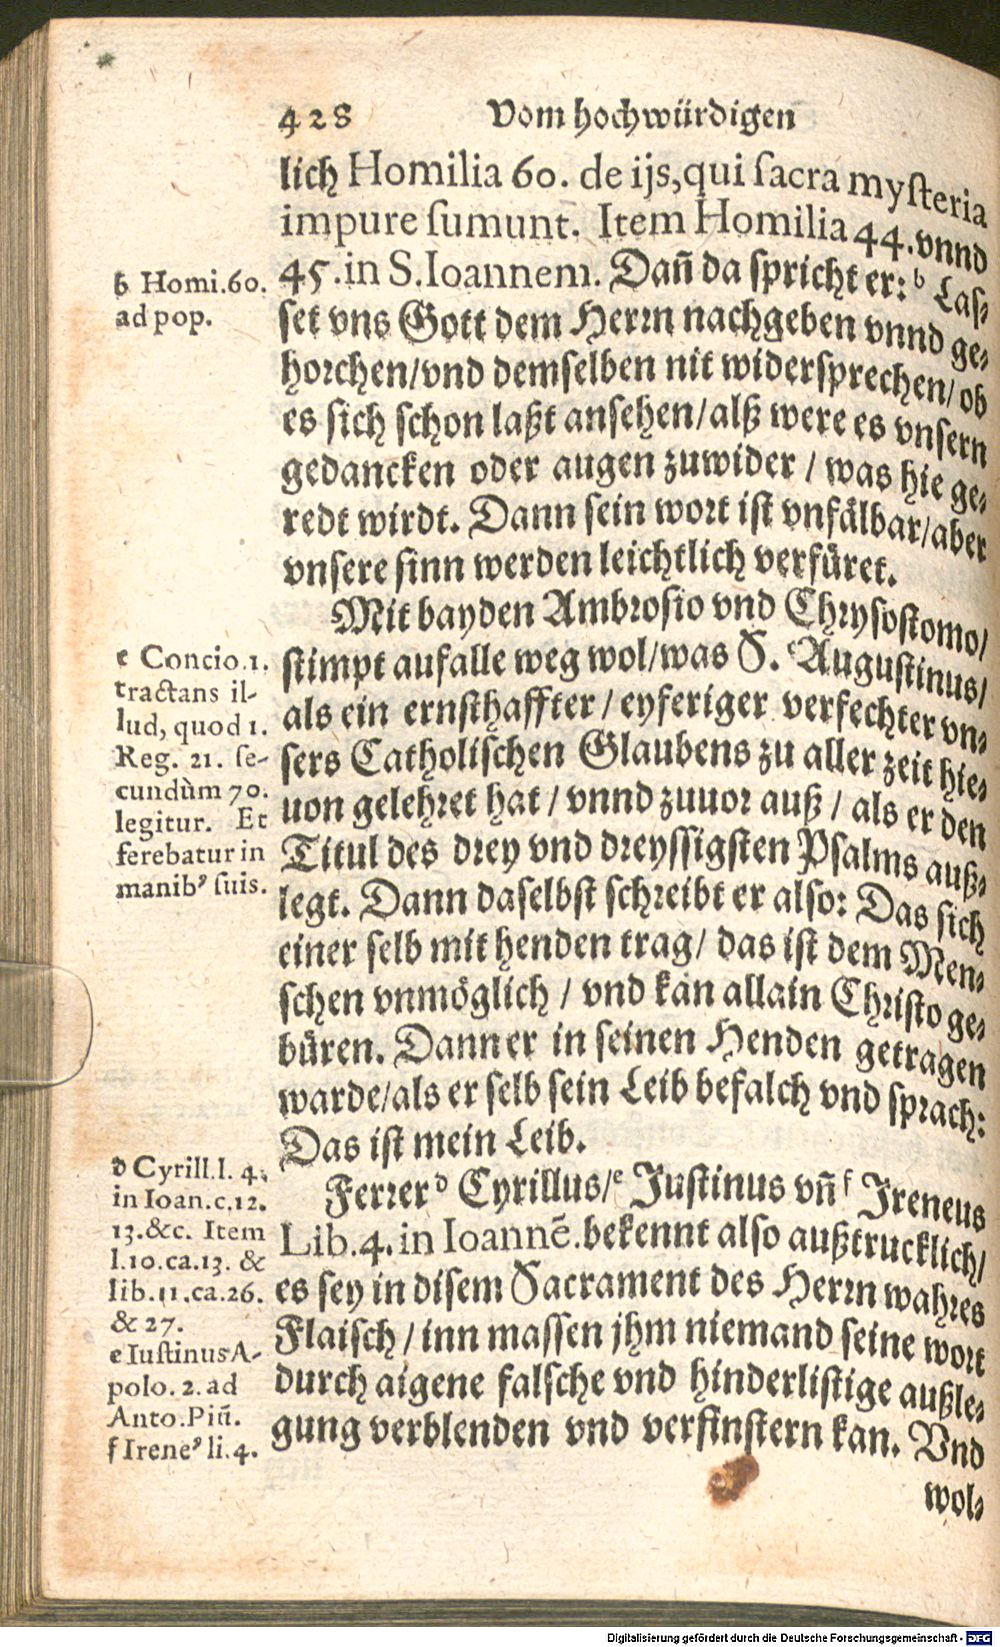 428 Vom hochwürdigen
lich Homilia 60. de ijs, qui ſacra myſteria
impure ſumunt. Item Homilia 44. vnnd
45. in S. Ioannem. Dañ da ſpricht er: b Laſ⸗
ſet vns Gott dem Herrn nachgeben vnnd ge⸗
horchen/ vnd demſelben nit widerſprechen/ ob
es ſich ſchon laßt anſehen/ alß were es vnſern
gedancken oder augen zuwider / was hie ge⸗
redt wirdt. Dann ſein wort iſt vnfälbar/ aber
vnſere ſinn werden leichtlich verfüret.
Mit bayden Ambroſio vnd Chryſoſtomo/
ſtimpt auf alle weg wol/ was S. c Auguſtinus/
als ein ernſthaffter / eyferiger verfechter vn⸗
ſers Catholiſchen Glaubens zu aller zeit hie⸗
uon gelehret hat / vnnd zuuor auß / als er den
Titul des drey vnd dreyſſigſten Pſalms auß⸗
legt. Dann daſelbſt ſchreibt er alſo: Das ſich
einer ſelb mit henden trag/ das iſt dem Men⸗
ſchen vnmöglich / vnd kan allain Chriſto ge⸗
büren. Dann er in ſeinen Henden getragen
warde/ als er ſelb ſein Leib befalch vnd ſprach:
Das iſt mein Leib.
Ferrer d Cyrillus/ e Juſtinus vñ f Jreneus
Lib. 4. in Ioannē. bekennt alſo außtrucklich/
es ſey in diſem Sacrament des Herrn wahres
Flaiſch / inn maſſen jhm niemand ſeine wort
durch aigene falſche vnd hinderliſtige außle⸗
gung verblenden vnd verfinſtern kan. Vnd
wol⸗
b Homi. 60.
ad pop.
c Concio. 1.
tractans il-
lud, quod 1.
Reg. 21. ſe-
cundùm 70.
legitur. Et
ferebatur in
manibꝰ ſuis.
d Cyrill. l. 4.
in Ioan. c. 12.
13. &c. Item
l. 10. ca. 13. &
lib. 11. ca. 26.
& 27.
e Iuſtinus A-
polo. 2. ad
Anto. Piū.
f Ireneꝰ li. 4.
Digitalisierung gefördert durch die Deutsche Forschungsgemeinschaft - DFG